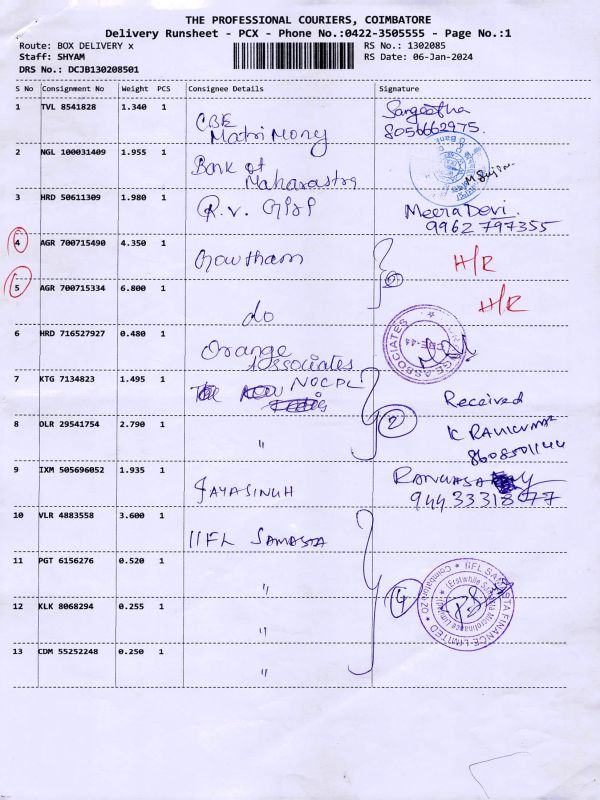 THE PROFESSIONAL COURIERS, COIMBATORE
Delivery Runsheet - PCX - Phone No.:0422-3505555 - Page No.:1
Route: BOX DELIVERY x RS No.: 1302085
Staff: SHYAM RS Date: 06-Jan-2024
DRS No.: DCJB130208501
S No Consignment No Weight PCS Consignee Details Signature
1 TVL 8541828 1.340 1 CBE Sangeetha
Matrimony 8056662975.
2 NGL 100031409 1.955 1 Bank of
Maharastra
3 HRD 50611309 1.980 1 R.V. Meera Devi.
9962 797355
4 AGR 700715490 4.350 1 Gowtham H/R
5 AGR 700715334 6.800 1 do H/R
6 HRD 716527927 0.480 1 Orange
Associates
7 KTG 7134823 1.495 1 NOCPL Received
8 OLR 29541754 2.790 1 " 2 K RAVIKUMAR
8608501144
9 IXM 505696052 1.935 1 JAYASINGH
10 VLR 4883558 3.600 1 IIFL SAMASTA
11 PGT 6156276 0.520 1 "
12 KLK 8068294 0.255 1 " 4 IIFL SAMASTA FINANCE LIMITED
13 CDM 55252248 0.250 1 "